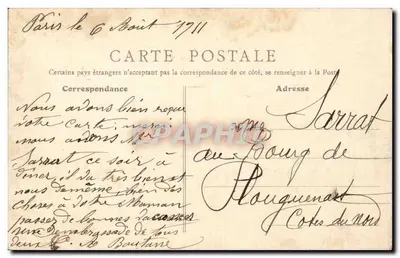 Paris le 6 Août 1911
CARTE POSTALE
Certains pays étrangers n'acceptant pas la correspondance de ce côté, se renseigner à la Poste
Correspondance
Adresse
Nous avons bien reçue
votre carte, merci
nous avons Mr
Sarrat ce soir à
diner, il va très bien et
nous de même, bien des
choses à votre Maman
passer de bonnes vacances
embrassade de tous
deux M Boutarre
Mme Sarrat
au Bourg de
Plouguenast
Cotes du Nord